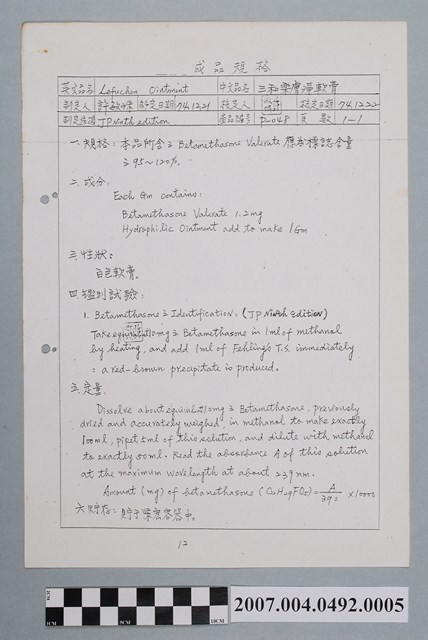 成品規格
英文品名 Lefuchin Ointment 中文品名 三和樂膚淨軟膏
制定人 許 制定日期 74.12.21 核定人 核定日期 74.12.22
制定依據 JP Ninth edition 產品編號 P-048 頁數 1-1
一. 規格: 本品所含之 Betamethasone Valerate 應為標誌含量
之 95~120%.
二. 成分:
Each Gm contains:
Betamethasone Valerate 1.2mg
Hydrophilic Ointment add to make 1Gm
三. 性狀:
白色軟膏.
四. 鑑別試驗:
1. Betamethasone之 Identification: (JP Ninth Edition)
Take equivalent 10mg之 Betamethasone in 1ml of methanol
by heating, and add 1ml of Fehling's T.S. immediately
: a red-brown precipitate is produced.
五. 定量:
Dissolve about 10mg之 Betamethasone, previously
dried and accurately weighed, in methanol to make exactly
100ml, pipet 5ml of this solution, and dilute with methanol
to exactly 50ml. Read the absorbance A of this solution
at the maximum wavelength at about 239nm.
Amount (mg) of betamethasone (C22H29FO5) = A/392 ×1000
六. 貯存: 貯于緊密容器中.
12
2007.004.0492.0005